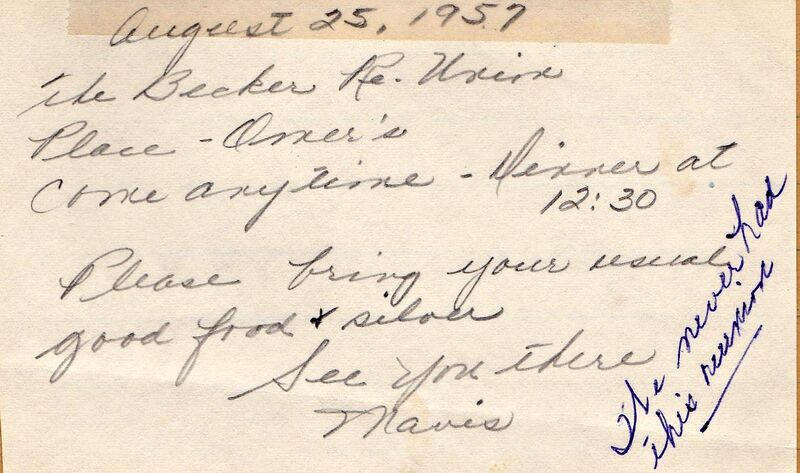 August 25, 1957
The Becker Re-Union
Place - Omer's
Come anytime - Dinner at
12:30
Please bring your usual
good food & silver
See you there
Mavis
We never had
this reunion